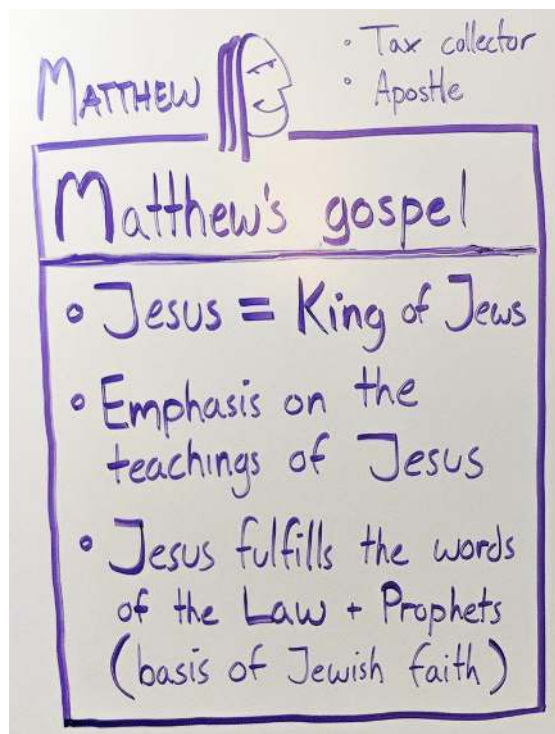 MATTHEW
• Tax collector
• Apostle
Matthew's gospel
• Jesus = King of Jews
• Emphasis on the
teachings of Jesus
• Jesus fulfills the words
of the Law + Prophets
(basis of Jewish faith)